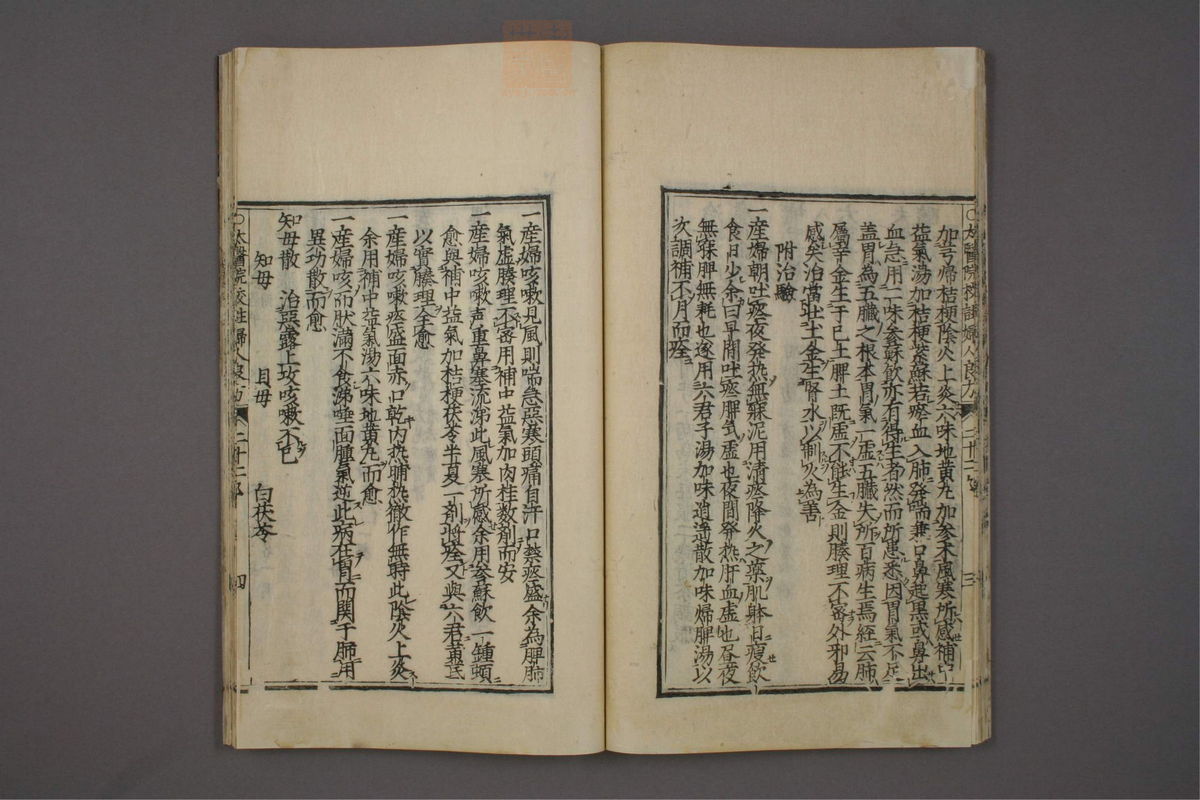 ○太醫院校註婦人良方 二十二 三
加芎歸桔梗陰火上炎六味地黄丸加參末風寒所感補中
益氣湯加桔梗葉蘇若瘀血入肺発喘兼口鼻起黒或鼻出
血急用二味參蘇飲亦有得生者然而所患悉因胃氣不足
盖胃為五臓之根本胃氣一虚五臓失所百病生焉経云肺
屬辛金生于已土脾土既虚不能生金則腠理不密外邪易
感矣治當壮土金生腎水以制火為善
附治驗
一産婦朝吐痰夜発熱無寐泥用清痰降火之藥肌躰日瘦飲
食日少余曰早間吐痰脾気虚也夜間発熱肝血虚也昼夜
無寐脾無耗也遂用六君子湯加味逍遥散加味帰脾湯以
次調補不月而痊
一産婦咳嗽見風則喘急惡寒頭痛自汗口禁痰盛余為脾肺
氣虚腠理不密用補中益氣加肉桂数剤而安
一産婦咳嗽声重鼻塞流涕此風寒所感余用參蘇飲一鍾頓
愈與補中益氣加桔梗茯苓半夏一剤將痊又與六君黄芪
以實腠理全愈
一産婦咳嗽痰盛面赤口乾内热晡热徹作無時此陰火上炎
余用補中益氣湯六味地黄丸而愈
一産婦咳而肤滿不食涕唾面腫氣逆此病在胃而関于肺用
異功散而愈
知母散 治惡露上攻咳嗽不已
知母 貝母 白茯苓
○太醫院校註婦人良方 二十二 四